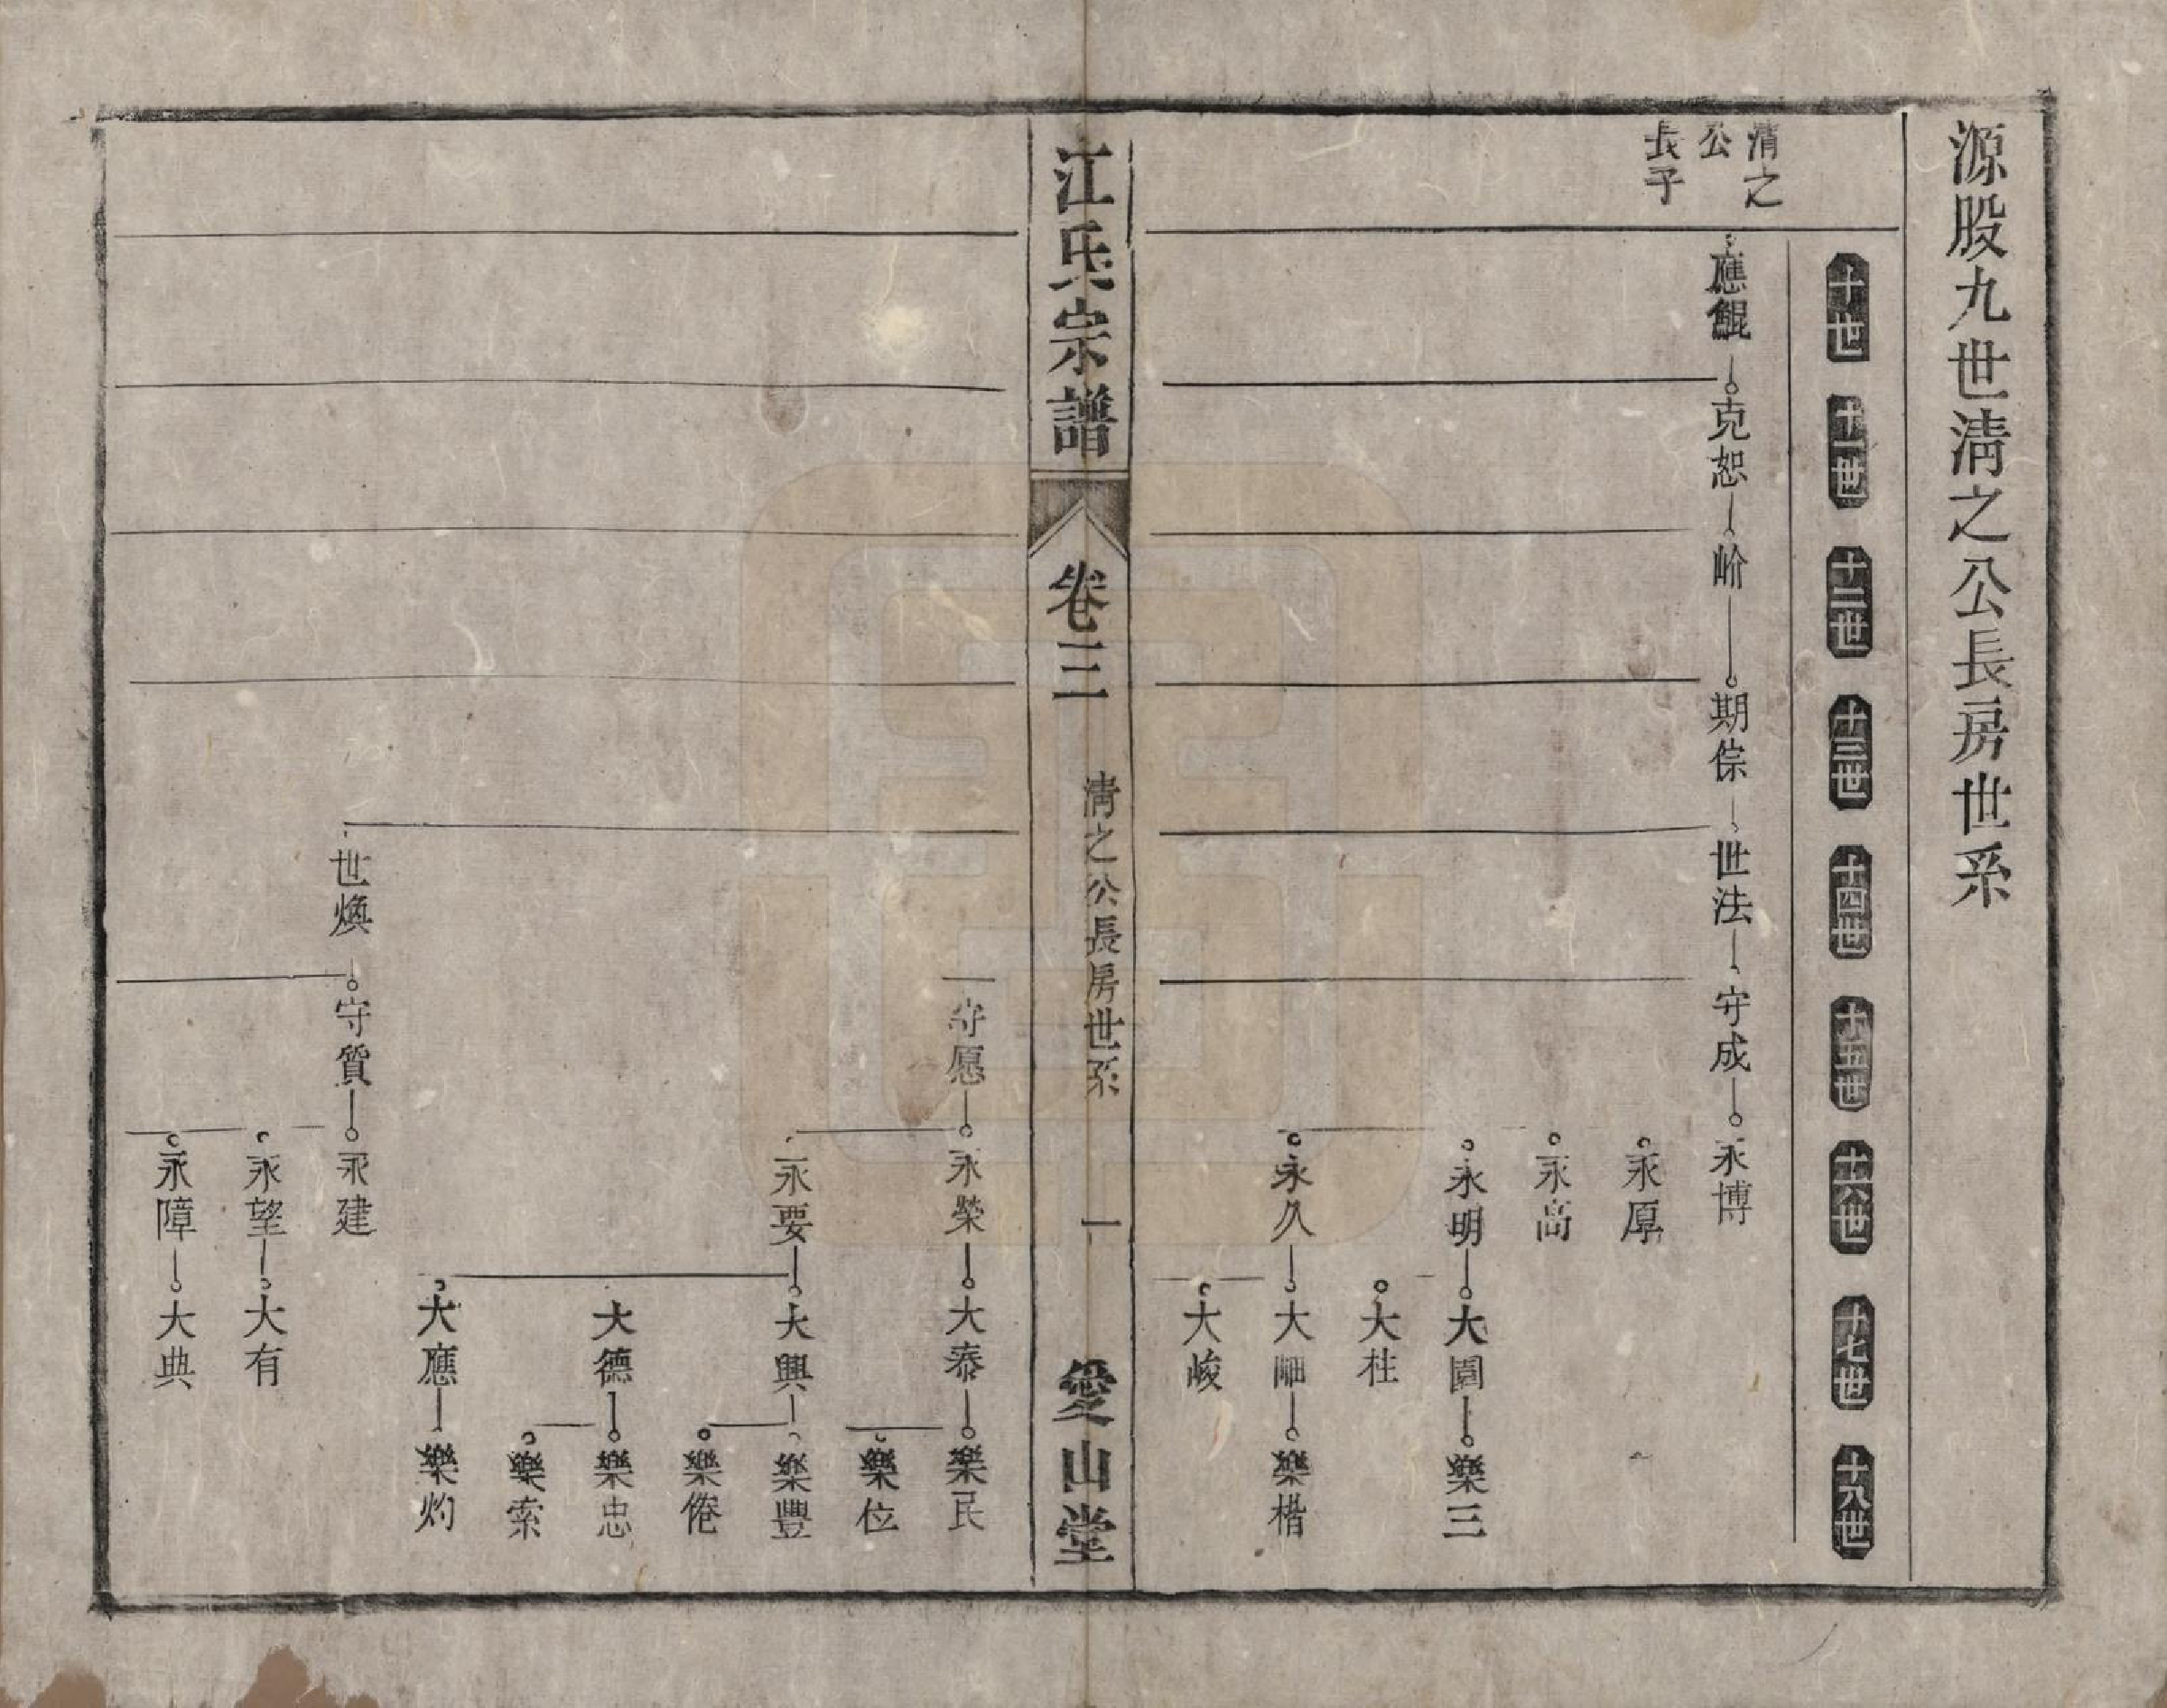 源股九世淸之公長房世系
十世
十一世
十二世
十三世
十四世
十五世
十六世
十七世
十八世
清之
公
長子
應鯤
克恕
岭
期倧
世法
守成
永博
永厚
永高
永明
大園
樂三
大柱
永久
大𡶴
樂楷
大峻
江氏宗譜
卷三
清之公長房世系
一
愛山堂
守愿
永榮
大泰
樂民
樂位
永要
大興
樂豐
樂倦
大德
樂忠
樂索
大應
樂灼
世煥
守質
永建
永望
大有
永障
大典